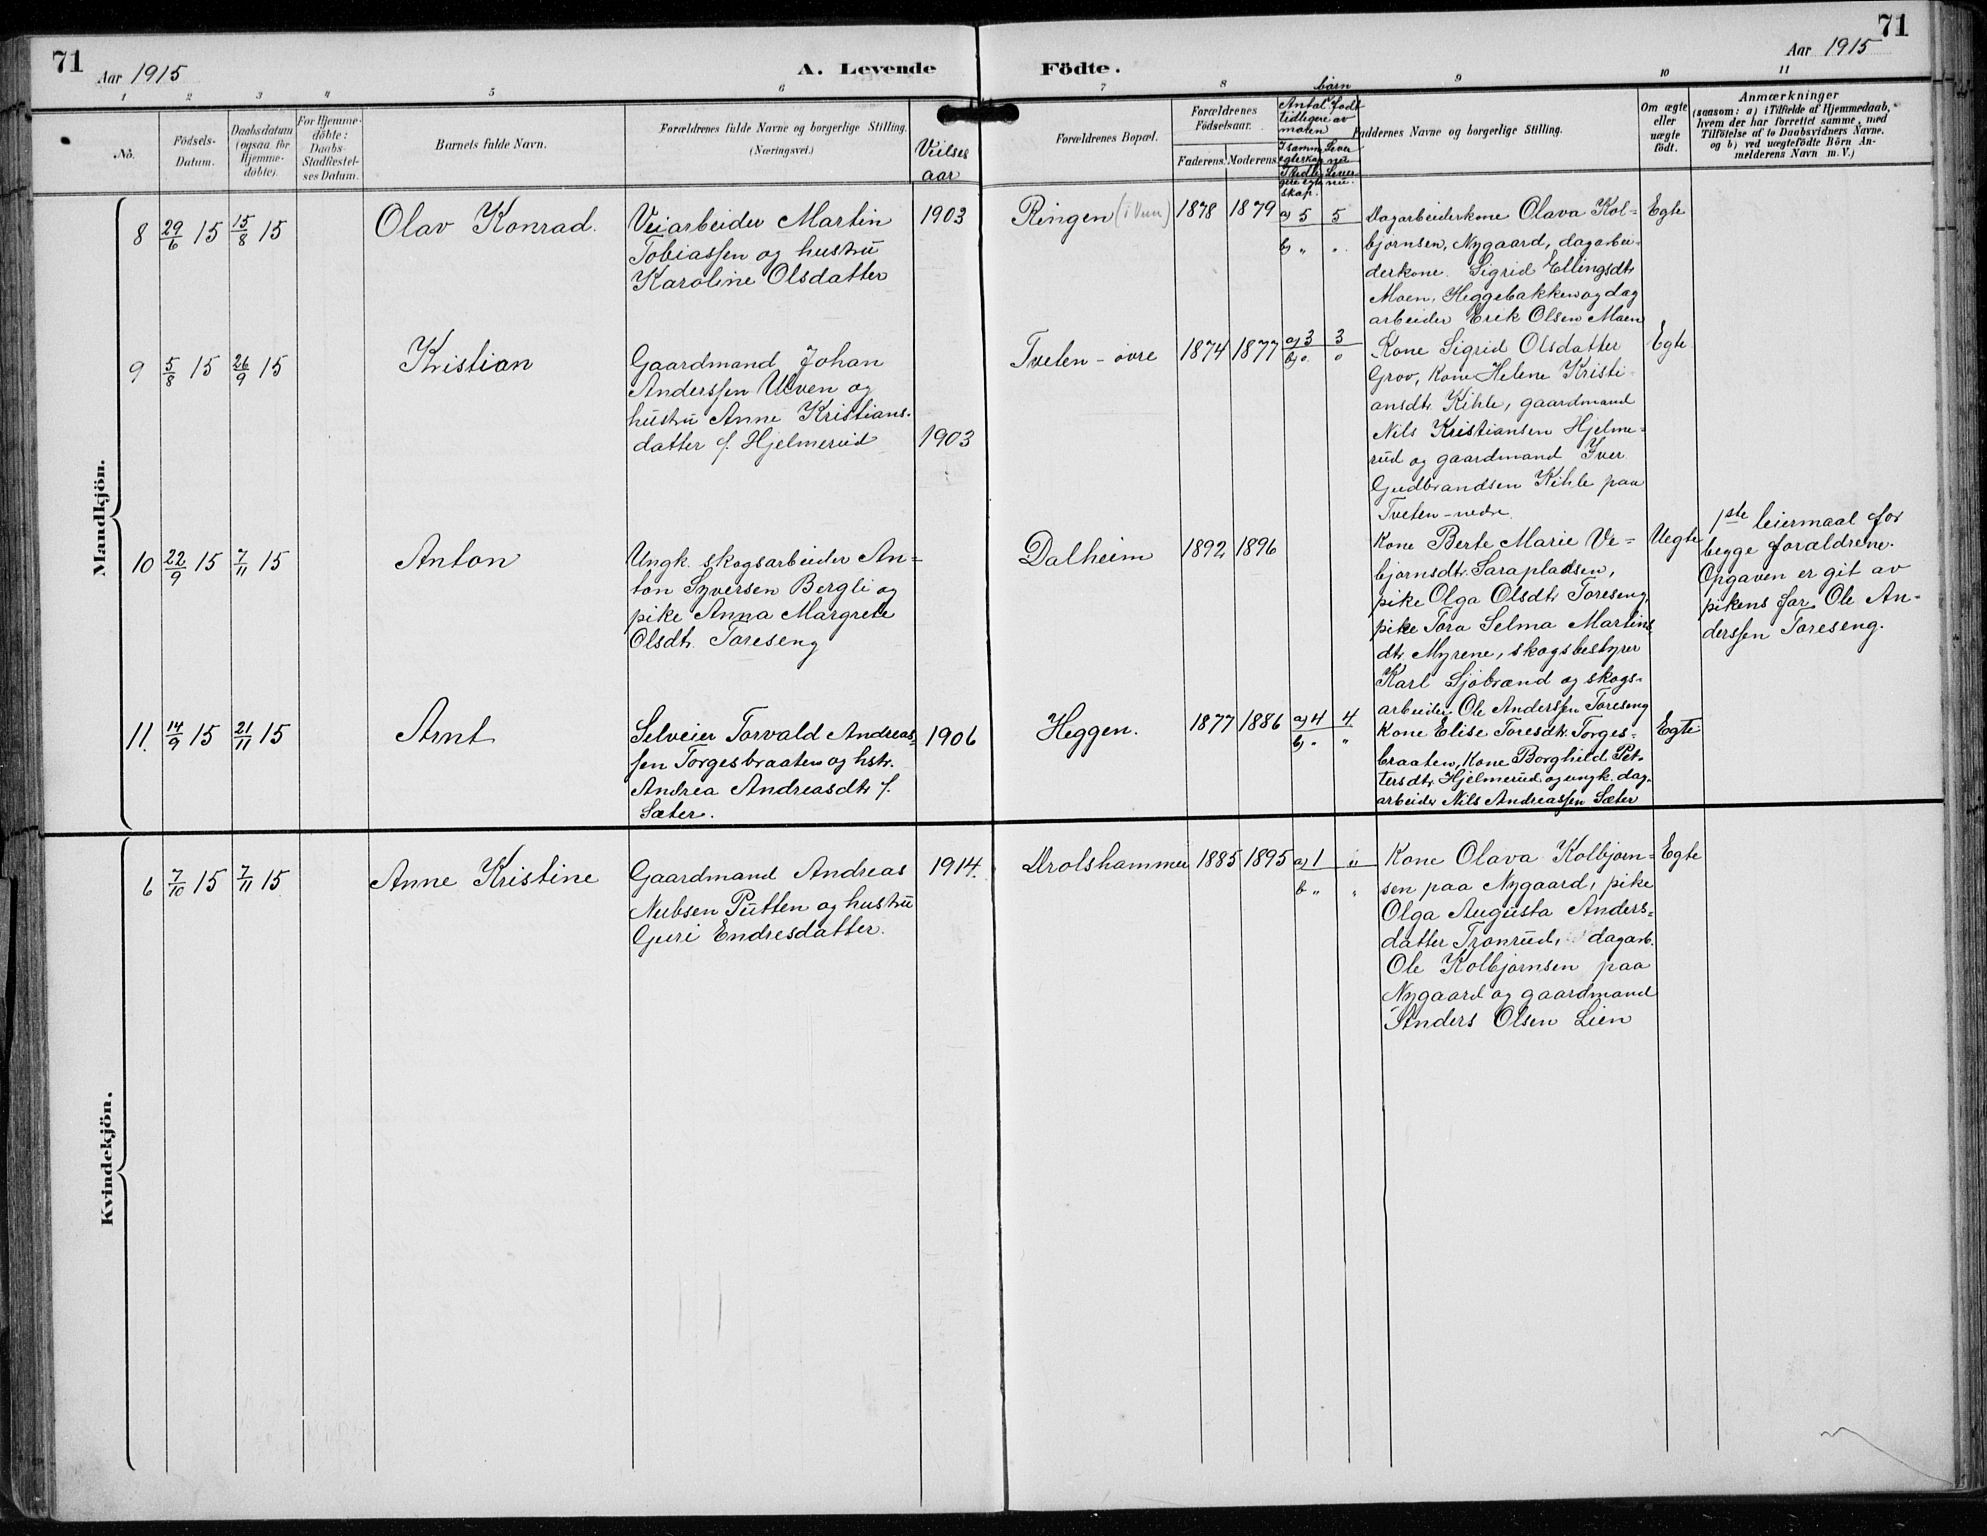 71
Aar 1915
A. Levende
Födte.
Aar 1915
71
1 2 3 4 5 6 7 8 9 10 11
No.
Födsels-
Datum.
Daabsdatum
(ogsaa for
Hjemme-
döbte).
For Hjemme-
döbte:
Daabs-
Stadfæstel-
ses Datum.
Barnets fulde Navn.
Forældrenes fulde Navne og borgerlige Stilling.
(Næringsvei.)
Vielses
aar
Forældrenes Bopæl.
Forældrenes
Födselsaar.
Faderens. Moderens.
børn
Antal født
tidligere av
moren
I samme Lever
egteskap nu
I tidli Lever
gere egte nu.
skap.
Faddernes Navne og borgerlige Stilling.
Om ægte
eller
uægte
födt.
Anmærkninger
(saasom: a) i Tilfælde af Hjemmedaab,
hvem der har forrettet samme, med
Tilföielse af to Daabsvidners Navne.
og b) ved uægtefödte Börn An-
melderens Navn m. V.)
Mandkjön.
8 29/6 15 15/8 15
Olav Konrad.
Veiarbeider Martin
Tobiassen og hustru
Karoline Olsdatter
1903
Ringen
1878 1879
a) 5 5
b) " "
Dagarbeiderkone Olava Kol-
bjørnsen, Nygaard, dagarbei-
derkone Sigrid Ellingsdtr
Moen, Heggebakken og dag
arbeider Erik Olsen Moen
Egte
9 5/8 15 26/9 15
Kristian
Gaardmand Johan
Anderssen Ulven og
hustru Anne Kristians-
datter f. Hjelmerud
1903
Tveten - øvre
1874 1877
a) 3 3
b) " "
Kone Sigrid Olsdatter
Grov, Kone Helene Kristi-
ansdtr. Kihle, gaardmand
Nils Kristiansen Hjelme-
rud og gaardmand Iver
Gudbrandsen Kihle paa
Tveten - nedre.
Egte
10 22/9 15 7/11 15
Anton
Ungk. skogsarbeider An-
ton Syversen Bergli og
pike Anna Margrete
Olsdtr. Toreseng
Dalheim
1892 1896
Kone Berte Marie Ve-
bjørnsdtr. Sarapladsen,
pike Olga Olsdtr Toreseng,
pike Tora Selma Martins
dtr Myrene, skogsbestyrer
Karl Sjøbrend og skogs-
arbeider Ole Anderssen Toreseng
Uegte
1ste leiermaal for
begge forældrene.
Opgaven er git av
pikens far Ole An-
derssen Toreseng.
11. 14/9 15 21/11 15
Arnt
Selveier Torvald Andreas-
sen Torgesbraaten og hstr.
Andrea Andreasdtr f.
Sæter.
1906
Heggen.
1877 1886
a) 4 4
b) " "
Kone Elise Toresdtr. Torges-
braaten, Kone Borghild Pet-
tersdtr Hjelmerud og ungk. dag-
arbeider Nils Andreassen Sæter
Egte
Kvindekjön.
6 7/10 15 7/11 15
Anne Kristine
Gaardmand Andreas
Nubsen Putten og hustru
Guri Endresdatter.
1914.
Drolshammer
1885 1895
a) 1 "
b " "
Kone Olava Kolbjørn-
sen paa Nygaard, pike
Olga Augusta Anders-
datter Tronrud, dagarb.
Ole Kolbjørnsen paa
Nygaard og gaardmand
Anders Olsen Lien
Egte